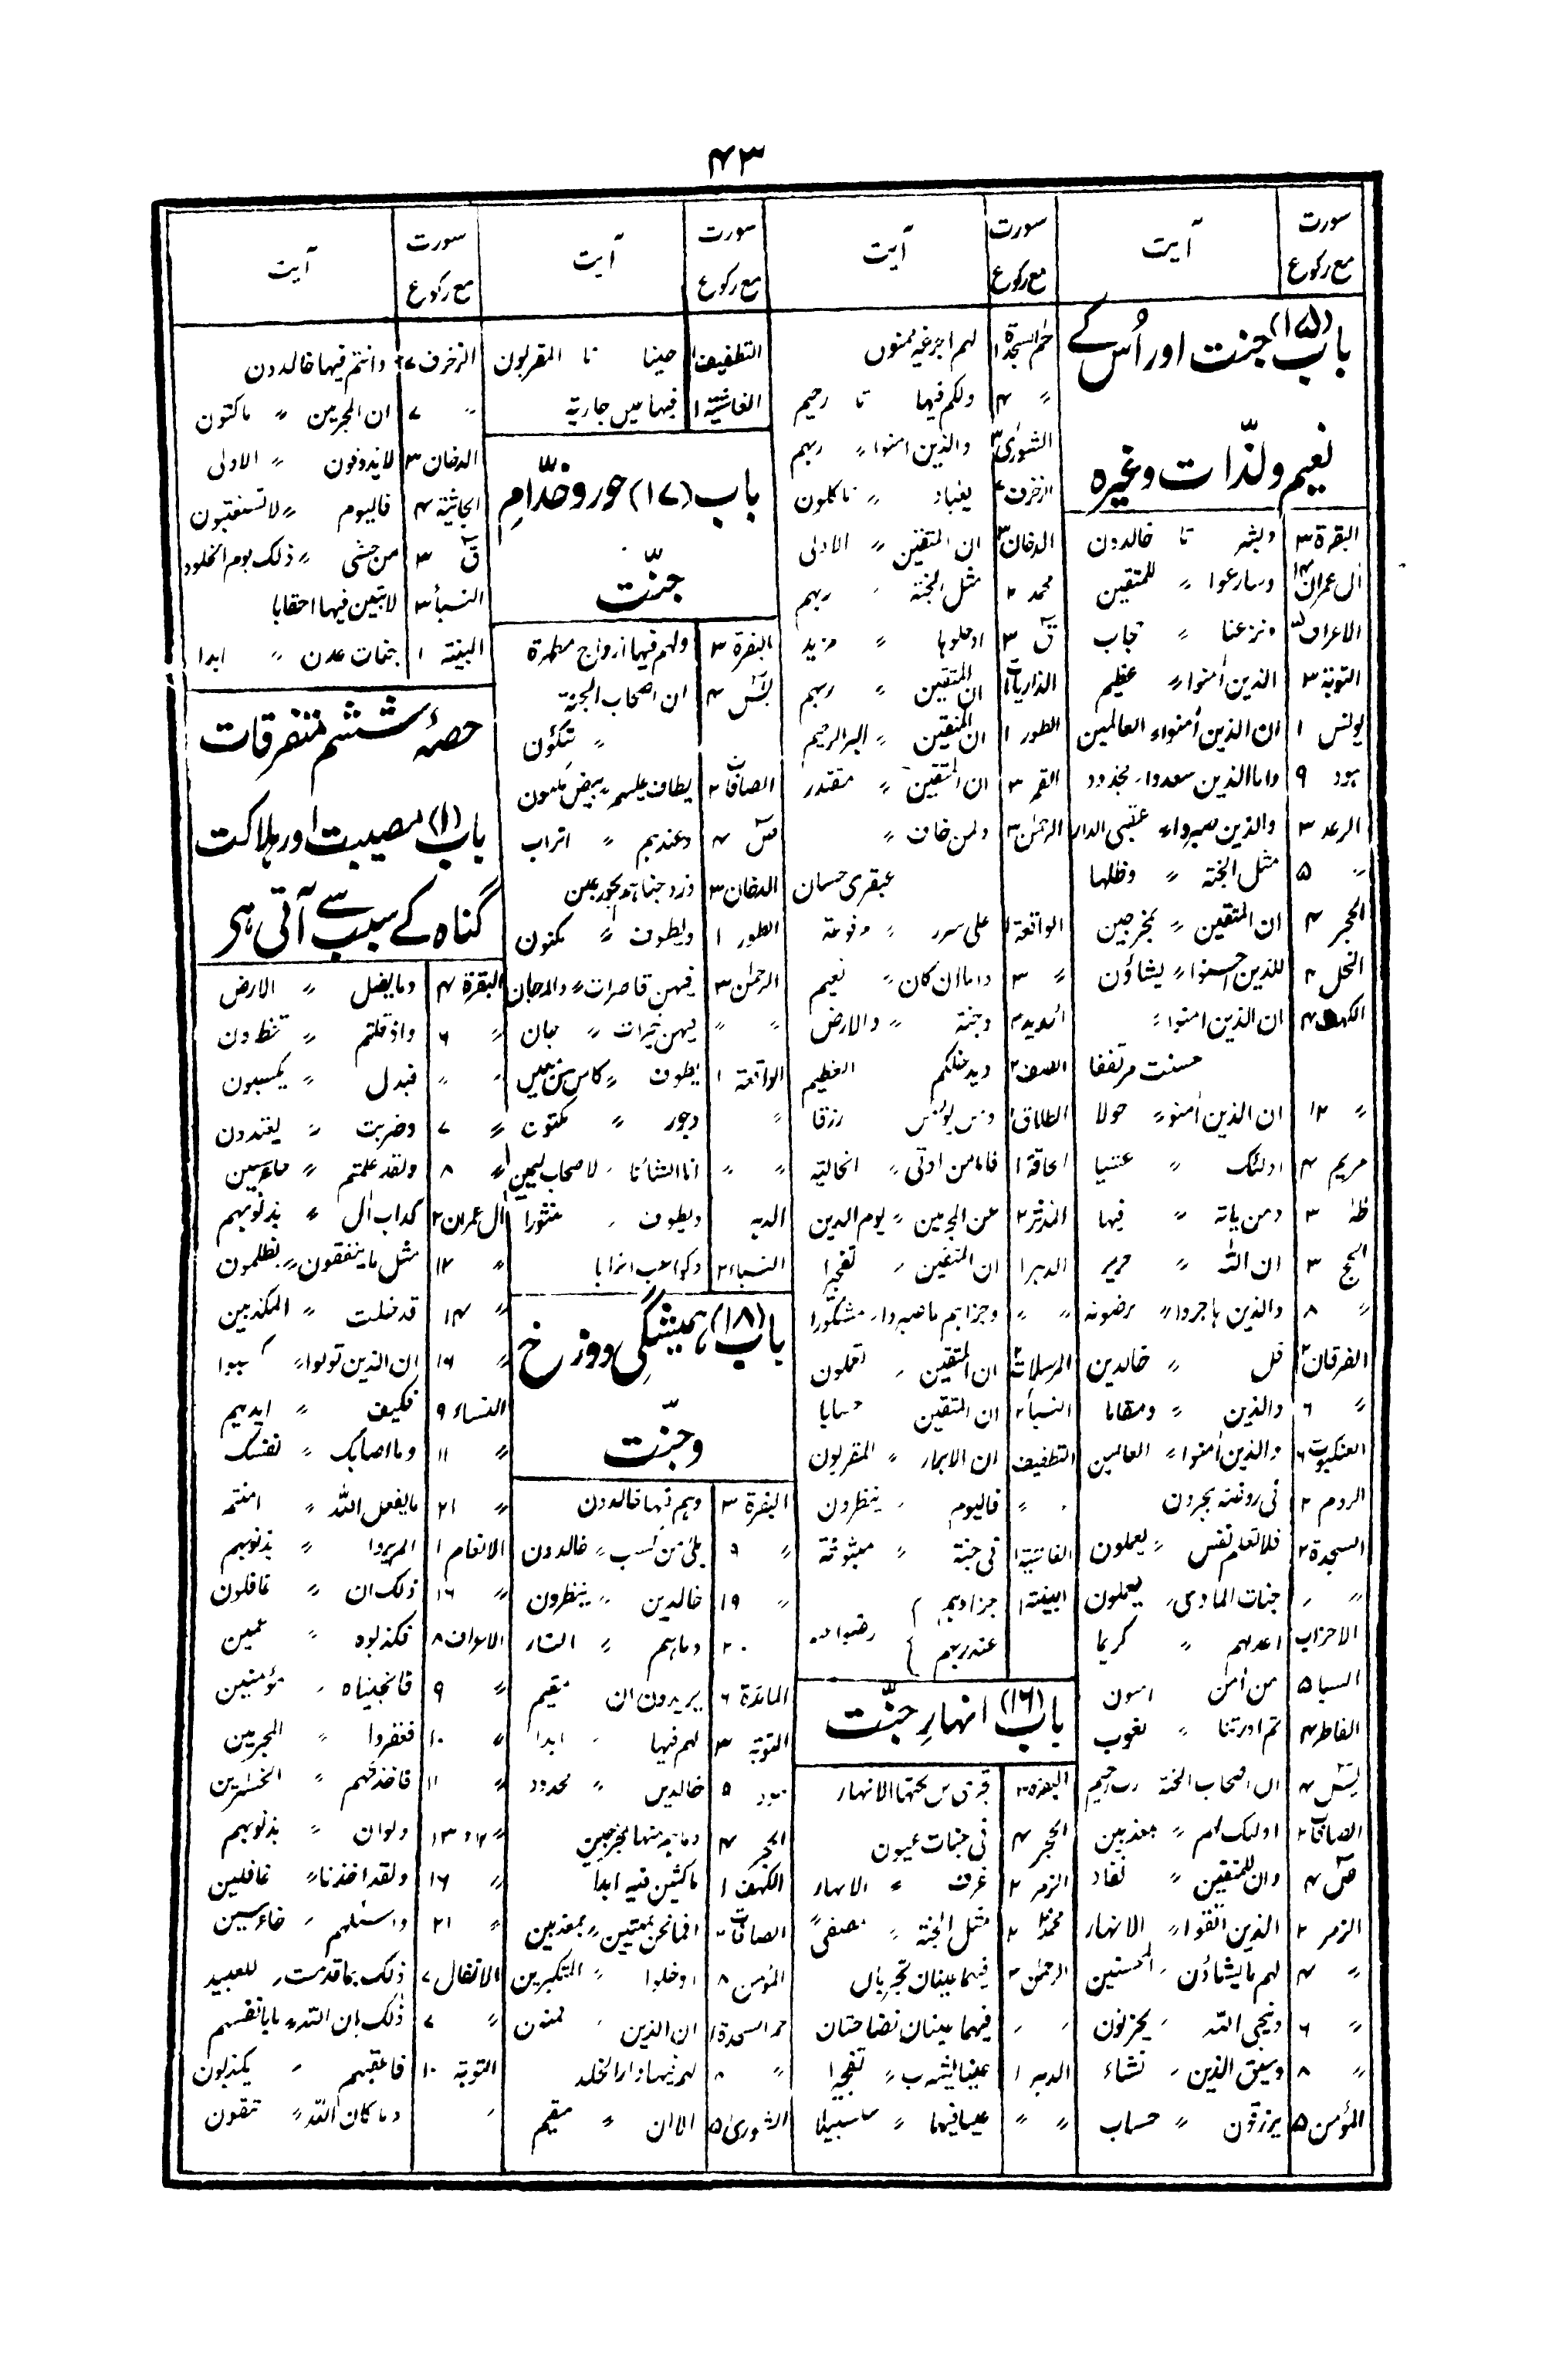 ۴۳
سورت مع رکوع آیت
باب (۱۵) جنت اور اُس کے
نعیم ولذّات وغیرہ
البقرة ۳ وبشر تا خالدون
اٰل عمران ۱۴ وسارعوا ″ للمتقین
الاعراف ۵ ونزعنا ″ تجاب
التوبة ۳ الذین اٰمنوا ″ عظیم
یونس ۱ ان الذین اٰمنوا ″ العالمین
ہود ۹ واما الذین سعدوا ″ مجذوذ
الرعد ۳ والذین صبروا ″ عقبی الدار
″ ۵ مثل الجنة ″ وظلها
الحجر ۴ ان المتقین ″ بمخرجین
النحل ۴ للذین احسنوا ″ یشاؤن
الکهف ۴ ان الذین امنوا ″
حسنت مرتفقا
″ ۱۲ ان الذین اٰمنوا ″ حولا
مریم ۴ اولئک ″ عشیا
طٰہٰ ۳ ومن یاتہ ″ فیها
الحج ۳ ان اللہ ″ حریر
″ ۸ والذین ہاجروا ″ یرضونہ
الفرقان ۲ قل ″ خالدین
″ ۶ والذین ″ ومقاما
العنکبوت ۶ والذین اٰمنوا ″ العالمین
الروم ۲ فی روضة یحبرون
السجدة ۲ فلا تعلم نفس ″ یعملون
″ ″ جنات الماوی ″ یعملون
الاحزاب اعد لهم ″ کریما
السبا ۵ من اٰمن امنون
الفاطر ۴ ثم اورثنا ″ لغوب
یٰسٓ ۴ ان اصحاب الجنة رب رحیم
الصافات ۲ اولئک لهم ″ بمعذبین
صٓ ۴ وان للمتقین ″ نفاد
الزمر ۲ الذین اتقوا ″ الانهار
″ ۴ لهم ما یشاؤن ″ المحسنین
″ ۶ وینجی اللہ ″ یحزنون
″ ۸ وسیق الذین ″ نشاء
المؤمن ۵ یرزقون ″ حساب
سورت مع رکوع آیت
حٰم السجدة ۱ لهم اجر غیر ممنون
″ ۴ ولکم فیها تا رحیم
الشوریٰ ۳ والذین امنوا ″ ربهم
الزخرف یعباد ″ تاکلون
الدخان ۳ ان المتقین ″ الاولی
محمد ۲ مثل الجنة ″ ربهم
قٓ ۳ ادخلوها ″ مزید
الذاریات ۱ ان المتقین ″ ربهم
الطور ۱ ان المتقین ″ البر الرحیم
القمر ۳ ان المتقین ″ مقتدر
الرحمٰن ۳ ولمن خاف ″
عبقری حسان
الواقعة ۱ علی سرر ″ مرفوعة
″ ۳ واما ان کان ″ نعیم
الحدید ۳ وجنة ″ والارض
الصف ۲ ویدخلکم العظیم
الطلاق ۲ ومن یومن رزقا
الحاقة ۱ فاما من اوتی ″ الخالیة
المدثر ۲ عن المجرمین ″ یوم الدین
الدهر ۱ ان المتقین ″ تفجیرا
″ ″ وجزاهم ما صبروا ″ مشکورا
المرسلات ۲ ان المتقین ″ تعملون
النبأ ۲ ان المتقین حسابا
التطفیف ان الابرار ″ المقربون
″ ″ فالیوم ″ ینظرون
الغاشیة ۱ فی جنة ″ مبثوثة
البینة ۱ جزاؤهم عند ربهم
باب (۱۶) انہارِ جنّت
البقرة ۳ تجری من تحتها الانهار
الحجر ۴ فی جنات عیون
الزمر ۲ غرف ″ الانهار
محمدؐ ۲ مثل الجنة ″ مصفیً
الرحمٰن ۳ فیهما عینان تجریان
″ ″ فیهما عینان نضاختان
الدهر ۱ عینا یشرب ″ تفجیرا
″ ″ عینا فیها ″ سلسبیلا
سورت مع رکوع آیت
التطفیف ۱ عینا تا المقربون
الغاشیة ۱ فیها عین جاریة
باب (۱۷) حور وخدّامِ
جنّت
البقرة ۳ ولهم فیها ازواج مطهرة
یٰسٓ ۴ ان اصحاب الجنة
″ متکؤن
الصافات ۲ یطاف علیهم ″ بیض مکنون
صٓ ۴ وعندهم ″ اتراب
الدخان ۳ وزوجناهم بحور عین
الطور ۱ ویطوف ″ مکنون
الرحمٰن ۳ فیهن قاصرات ″ والمرجان
″ ″ فیهن خیرات ″ جان
الواقعة ۱ یطوف ″ کاس من معین
″ وحور ″ مکنون
″ ″ انا انشأنا ″ لاصحاب الیمین
الدهر ویطوف ″ منثوراً
النبأ ۲ وکواعب اترابا
باب (۱۸) ہمیشگی دوزخ
و جنّت
البقرة ۳ وهم فیها خالدون
″ ۹ بلیٰ من کسب ″ خالدون
″ ۱۹ خالدین ″ ینظرون
۲۰ وماهم ″ النار
المائدة ۶ یریدون ان مقیم
التوبة ۳ لهم فیها ″ ابدا
ہود ۵ خالدین ″ محدود
الحجر ۴ وماهم منها بمخرجین
الکهف ۱ ماکثین فیه ابدا
الصافات ۲ افما نحن بمیتین ″ بمعذبین
المؤمن ۸ ادخلوا ″ المتکبرین
حم السجدة ۱ ان الذین ″ ممنون
″ ۸ لهم فیها دار الخلد
الشوریٰ ۵ الا ان ″ مقیم
سورت مع رکوع آیت
الزخرف ۷ وانتم فیها خالدون
″ ۷ ان المجرمین ″ ماکثون
الدخان ۳ لا یذوقون ″ الاولی
الجاثیة ۴ فالیوم ″ لا تستعتبون
قٓ ۳ من خشی ″ ذلک یوم الخلود
النبأ ۳ لابثین فیها احقابا
البینة ۱ جنات عدن ″ ابدا
حصۂ ششم متفرقات
باب (۱) مصیبت اور ہلاکت
گناہ کے سبب سے آتی ہے
البقرة ۴ وما یضل ″ الارض
″ ۶ واذ قلتم ″ تنظرون
″ ″ فبدل ″ یکسبون
″ ۷ وضربت ″ یعتدون
″ ۸ ولقد علمتم ″ خاسئین
اٰل عمران ۲ کداب اٰل ″ بذنوبهم
″ ۱۲ مثل ما ینفقون ″ یظلمون
″ ۱۴ قد خلت ″ المکذبین
″ ۱۶ ان الذین تولوا ″ کسبوا
النساء ۹ فکیف ″ ایدیهم
″ ۱۱ وما اصابک ″ نفسک
″ ۲۱ ما یفعل اللہ ″ امنتم
الانعام ۱ الم یروا ″ بذنوبهم
″ ۱۶ ذلک ان ″ غافلون
الاعراف ۸ فکذبوه ″ عمین
″ ۹ فانجیناه ″ مؤمنین
″ ۱۰ فعقروا ″ المجرمین
″ ۱۱ فاخذتهم ″ الخٰسرین
″ ۱۲ و ۱۳ ولو ان ″ بذنوبهم
″ ۱۶ ولقد اخذنا ″ غافلین
″ ۲۱ واسئلهم ″ خاسئین
الانفال ۷ ذلک بما قدمت ″ للعبید
″ ۷ ذٰلک بان اللہ ″ ما بانفسهم
التوبة ۱۰ فاعقبهم ″ یکذبون
″ وما کان اللہ ″ تتقون